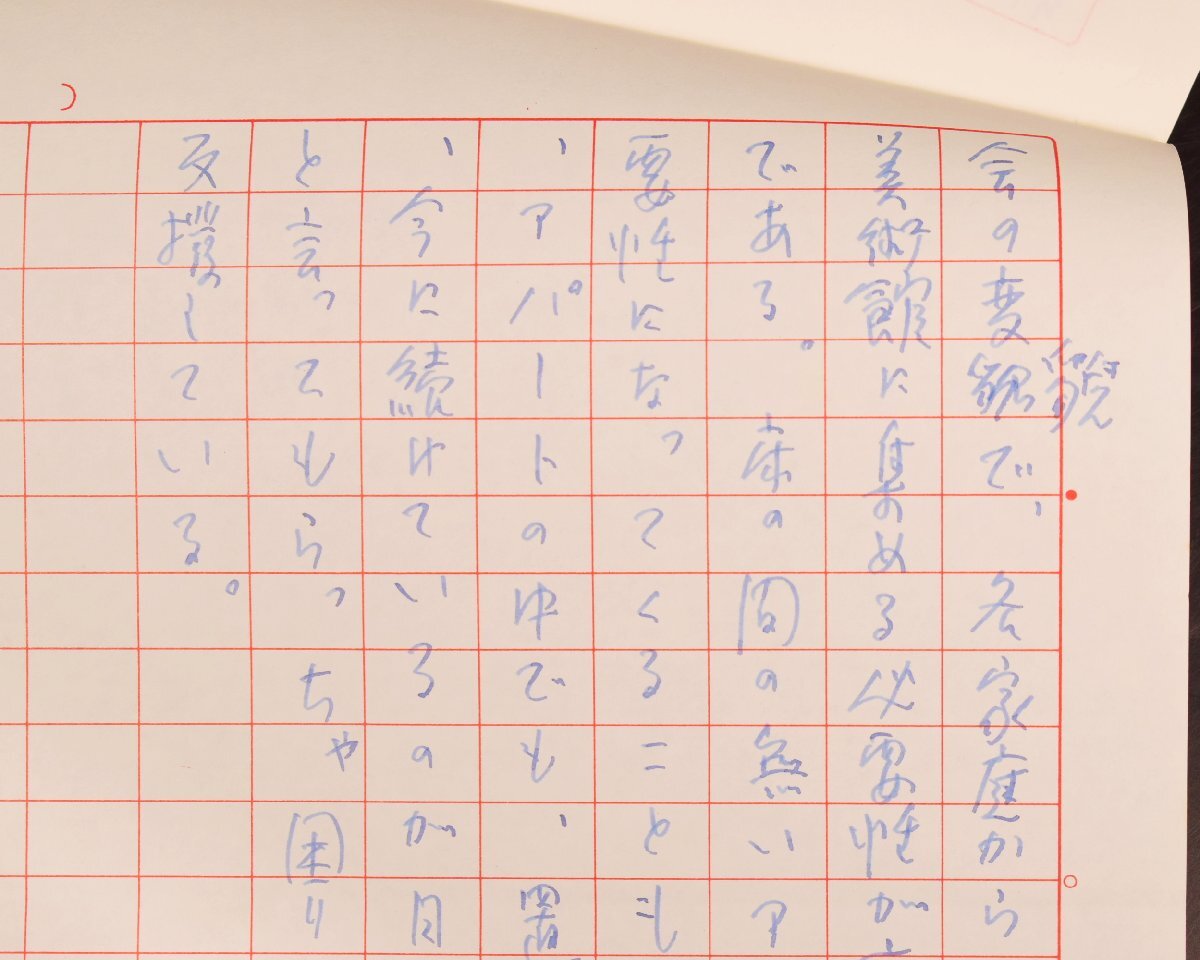 会の変貌で、各家庭から
美術館に集める必要性が
である。床の間の無いア
要性になってくること
、アパートの中でも、置
、今に続けているのが月
と言ってもらっちゃ困り
反撥している。